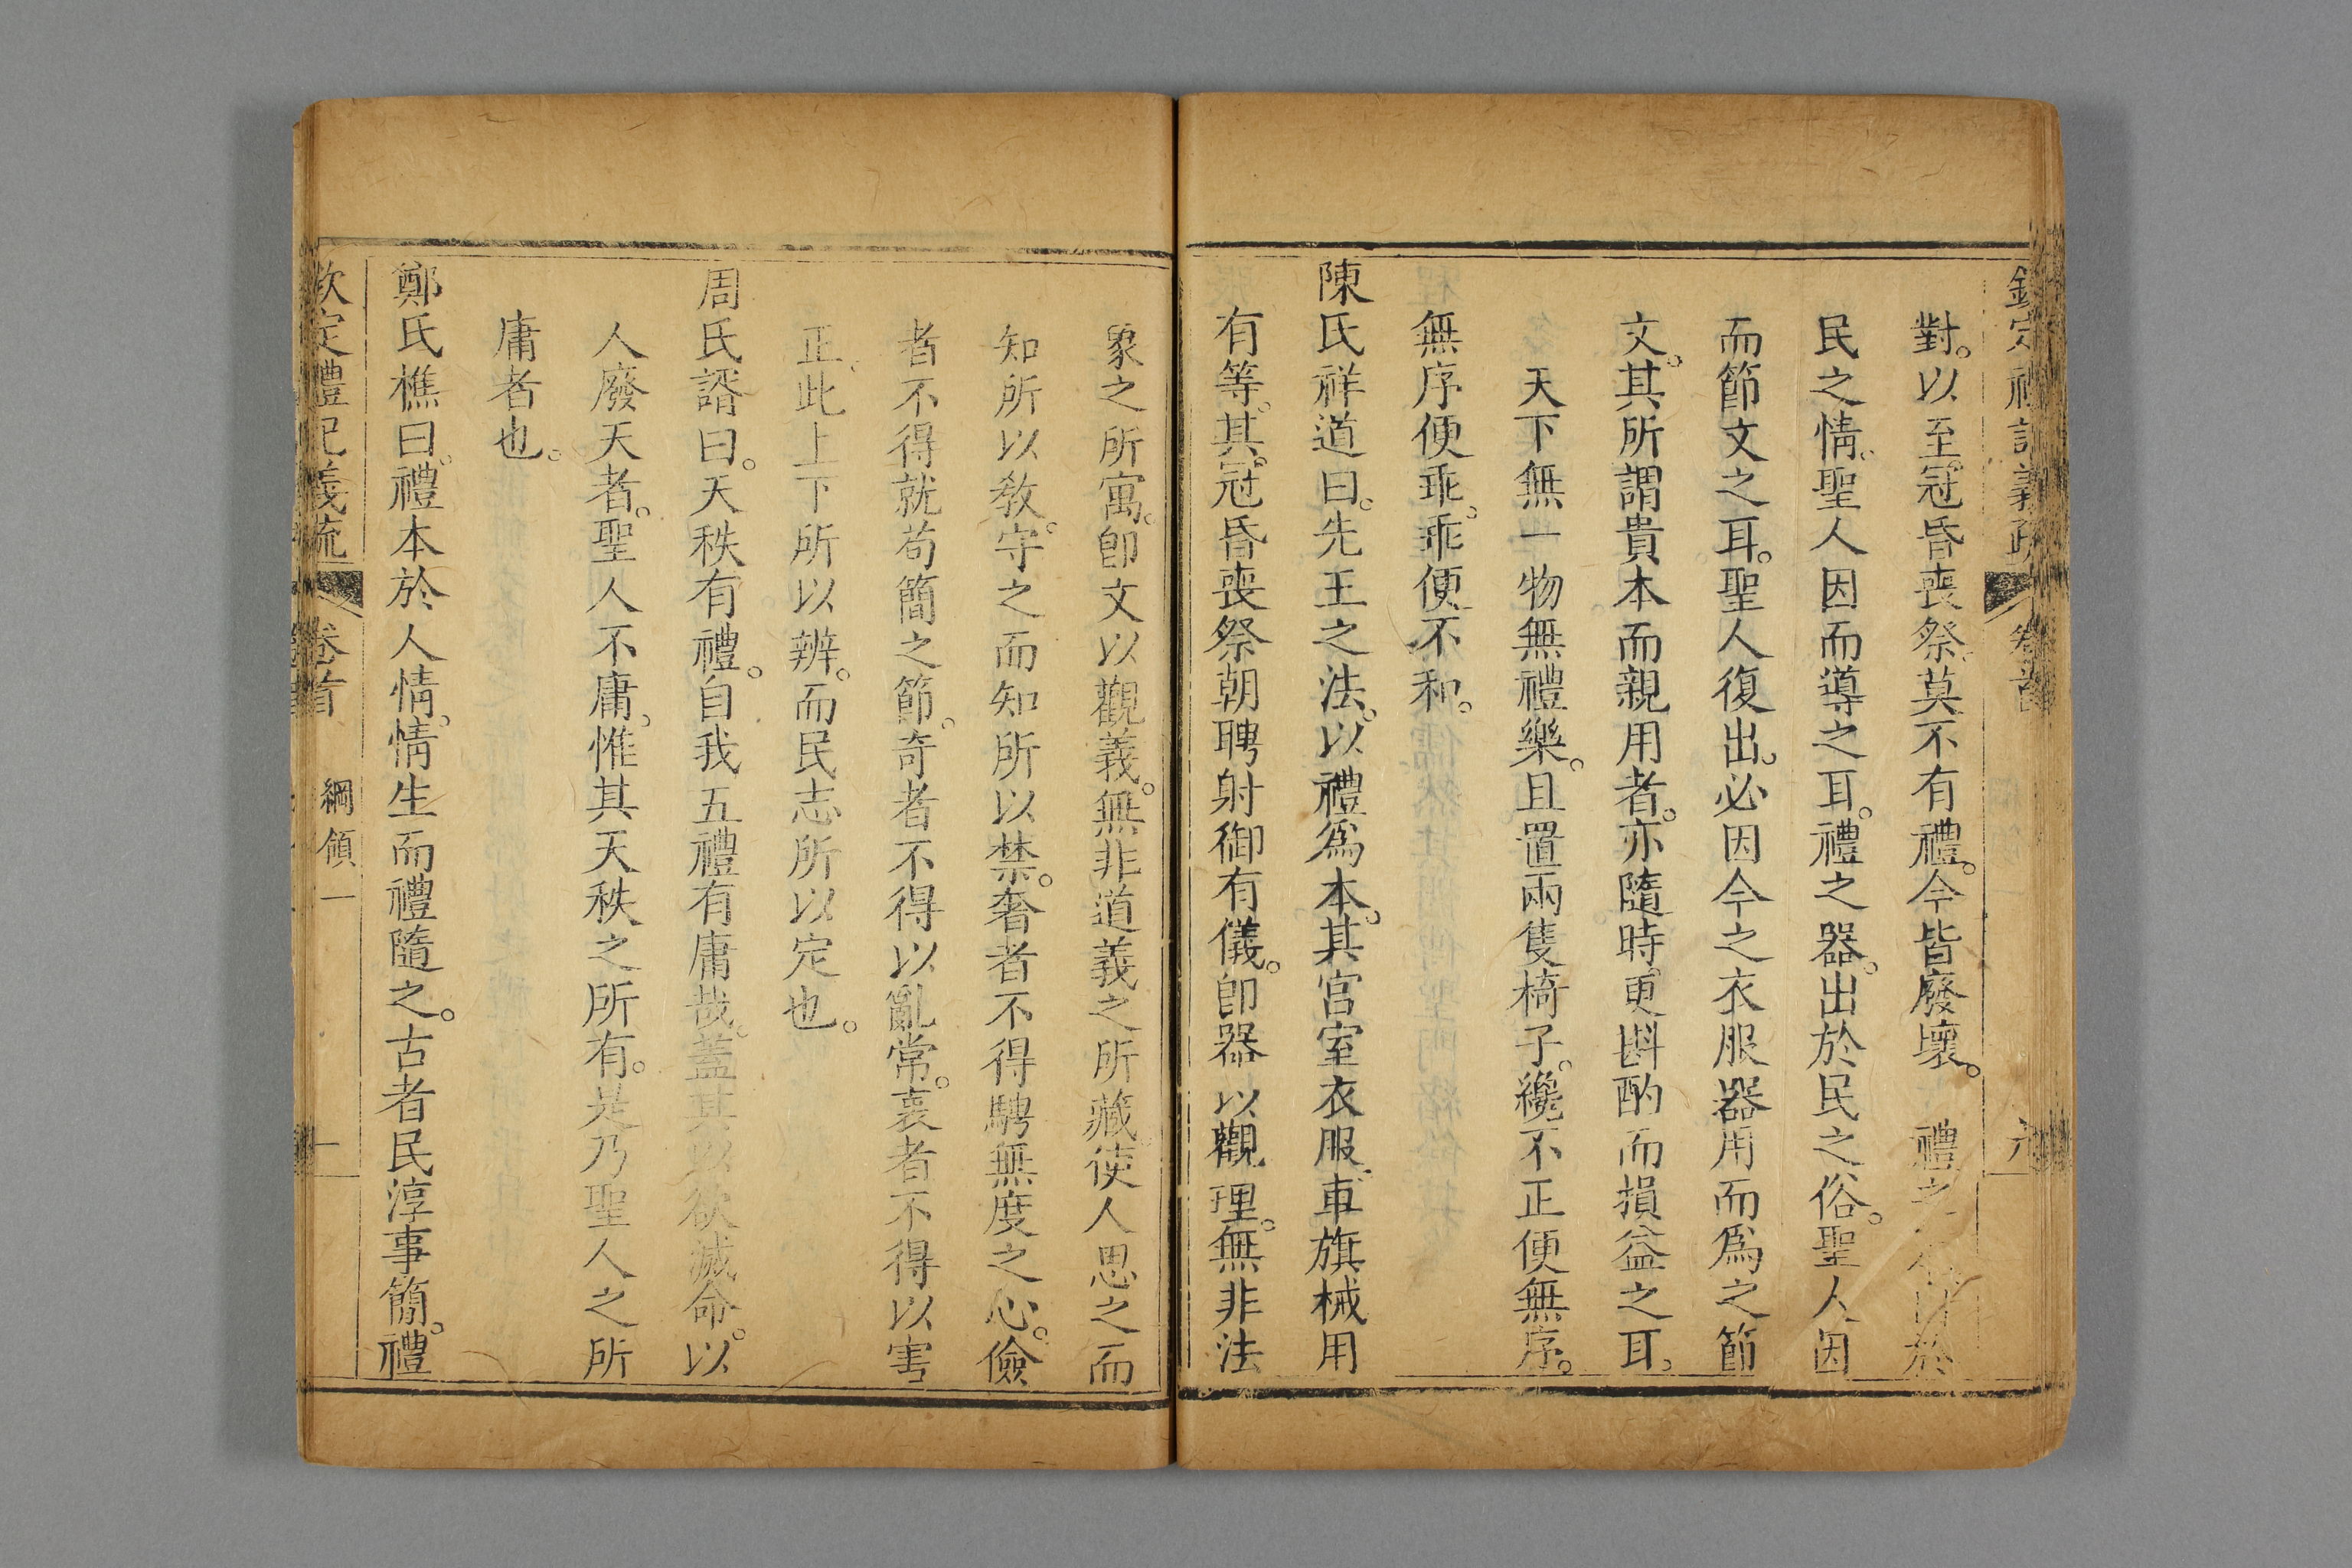 欽定禮記義疏 卷首
對。以至冠昏喪祭。莫不有禮。今皆廢壞。 禮之本出於
民之情。聖人因而導之耳。禮之器。出於民之俗。聖人因
而節文之耳。聖人復出。必因今之衣服器用而爲之節
文。其所謂貴本而親用者。亦隨時更斟酌而損益之耳。
天下無一物無禮樂。且置兩隻椅子。纔不正便無序。
無序便乖。乖便不和。
陳氏祥道曰。先王之法。以禮爲本。其宮室衣服。車旗械用
有等。其冠昏喪祭朝聘射御有儀。卽器以觀理。無非法
象之所寓。卽文以觀義。無非道義之所藏。使人思之而
知所以敎。守之而知所以禁。奢者不得騁無度之心。儉
者不得就苟簡之節。奇者不得以亂常。衺者不得以害
正。此上下所以辨。而民志所以定也。
周氏諝曰。天秩有禮。自我五禮有庸哉。蓋其以欲滅命。以
人廢天者。聖人不庸。惟其天秩之所有。是乃聖人之所
庸者也。
鄭氏樵曰。禮本於人情。情生而禮隨之。古者民淳事簡。禮
欽定禮記義疏 卷首 綱領一